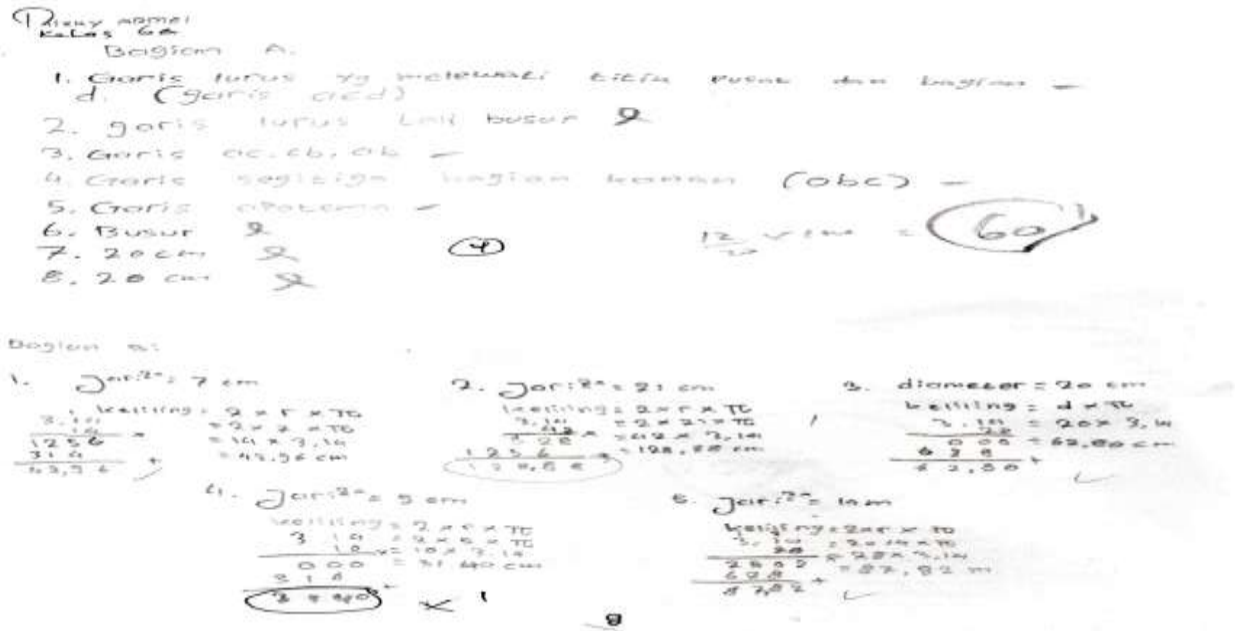 Kelas 6a
Bagian A.
1. Garis lurus yg melewati titik pusat dan bagian
d. (garis acd)
2. garis lurus busur
3. Garis ac, cb, ab
4. Garis segitiga bagian kanan (obc)
5. Garis apotema
6. Busur
7. 20 cm
8. 20 cm
4
12/20 x 100 = 60
Bagian B:
1. Jari2 = 7 cm
keliling = 2 x r x π
= 2 x 7 x π
= 14 x 3,14
= 43,96 cm
3,14
14 x
1256
314 +
43,96
2. Jari2 = 21 cm
keliling = 2 x r x π
= 2 x 21 x π
= 42 x 3,14
3,14
42 x
1256 +
3. diameter = 20 cm
keliling = d x π
= 20 x 3,14
= 62,80 cm
3,14
20
000
628 +
62,80
4. Jari2 = 5 cm
keliling = 2 x r x π
= 2 x 5 x π
= 10 x 3,14
= 31,40 cm
314
10 x
000
1
5. Jari2 = 14 m
keliling = 2 x r x π
= 2 x 14 x π
= 28 x 3,14
3,14
28 x
628 +
8